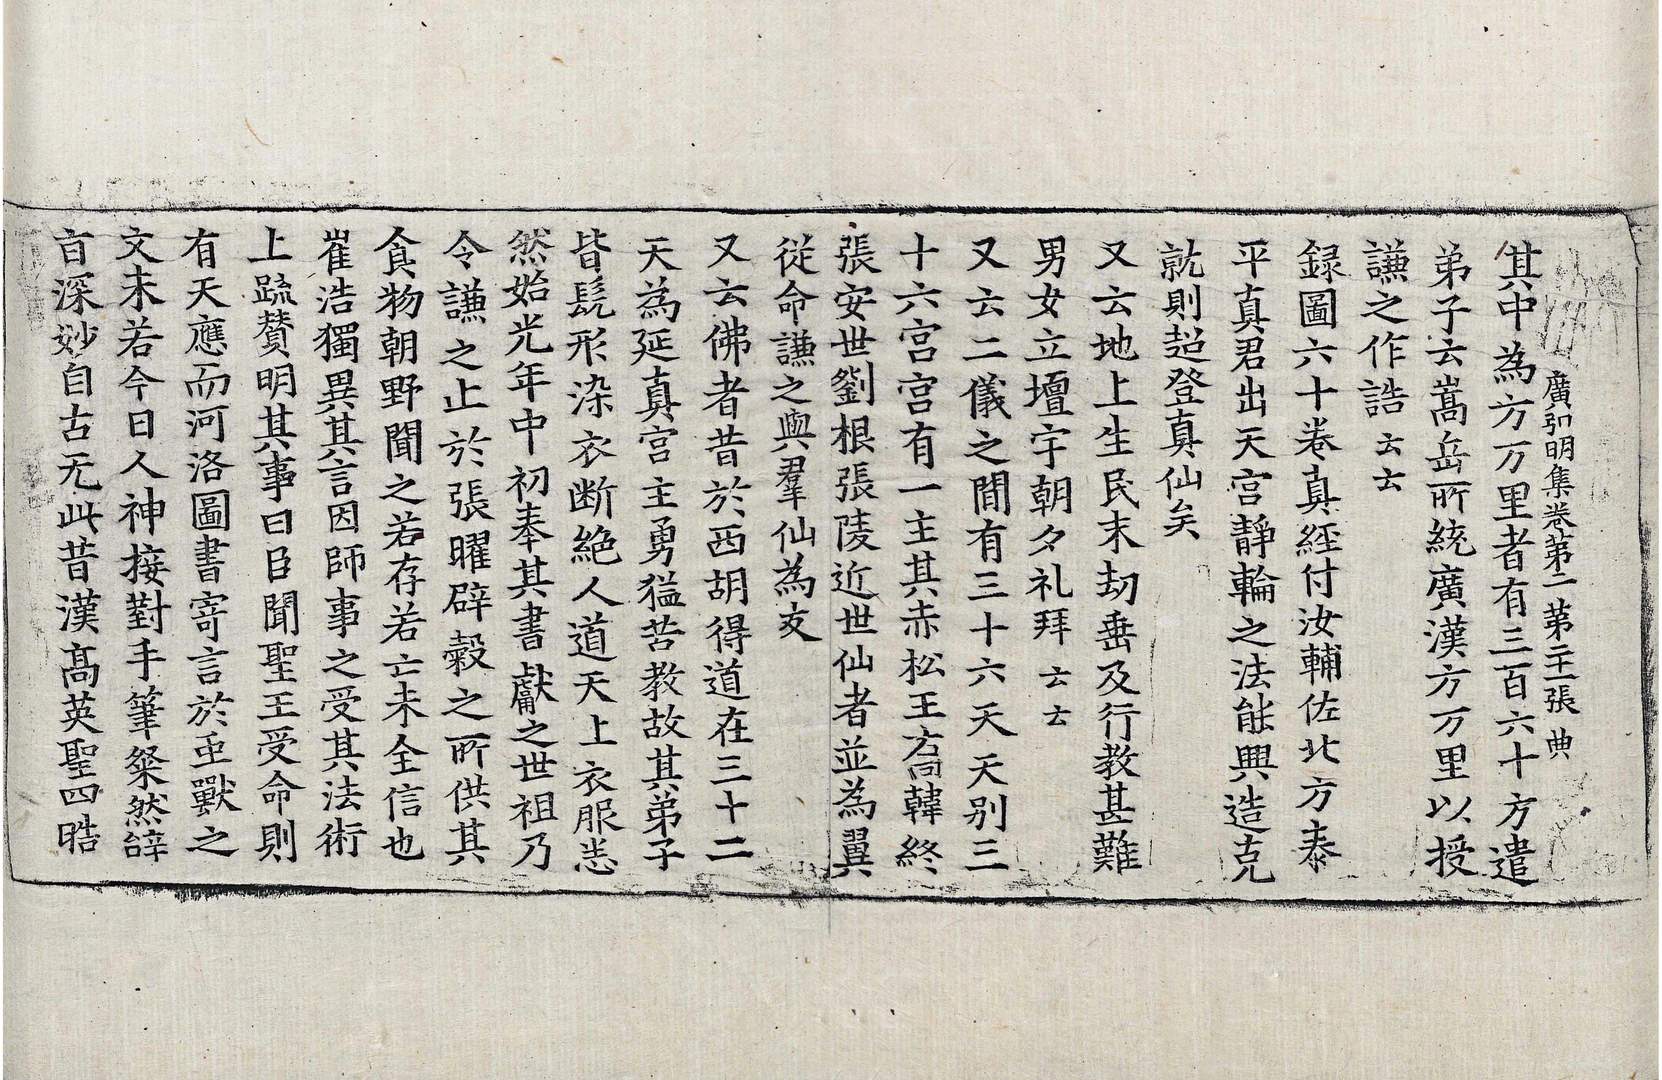 廣弘明集卷第二 第二十一張 典
其中為方万里者有三百六十方遣
弟子云嵩岳所統廣漢方万里以授
謙之作誥云云
録圖六十卷真經付汝輔佐北方泰
平真君出天宮靜輪之法能興造克
就則超登真仙矣
又云地上生民末劫垂及行教甚難
男女立壇宇朝夕礼拜云云
又云二儀之間有三十六天天別三
十六宮宮有一主其赤松王喬韓終
張安世劉根張陵近世仙者並為翼
從命謙之與羣仙為友
又云佛者昔於西胡得道在三十二
天為延真宮主勇猛苦教故其弟子
皆髡形染衣断絶人道天上衣服悉
然始光年中初奉其書獻之世祖乃
令謙之止於張曜辟穀之所供其
食物朝野聞之若存若亡未全信也
崔浩獨異其言因師事之受其法術
上疏賛明其事曰臣聞聖王受命則
有天應而河洛圖書寄言於虫獸之
文未若今日人神接對手筆粲然辝
㫖深妙自古无此昔漢髙英聖四晧